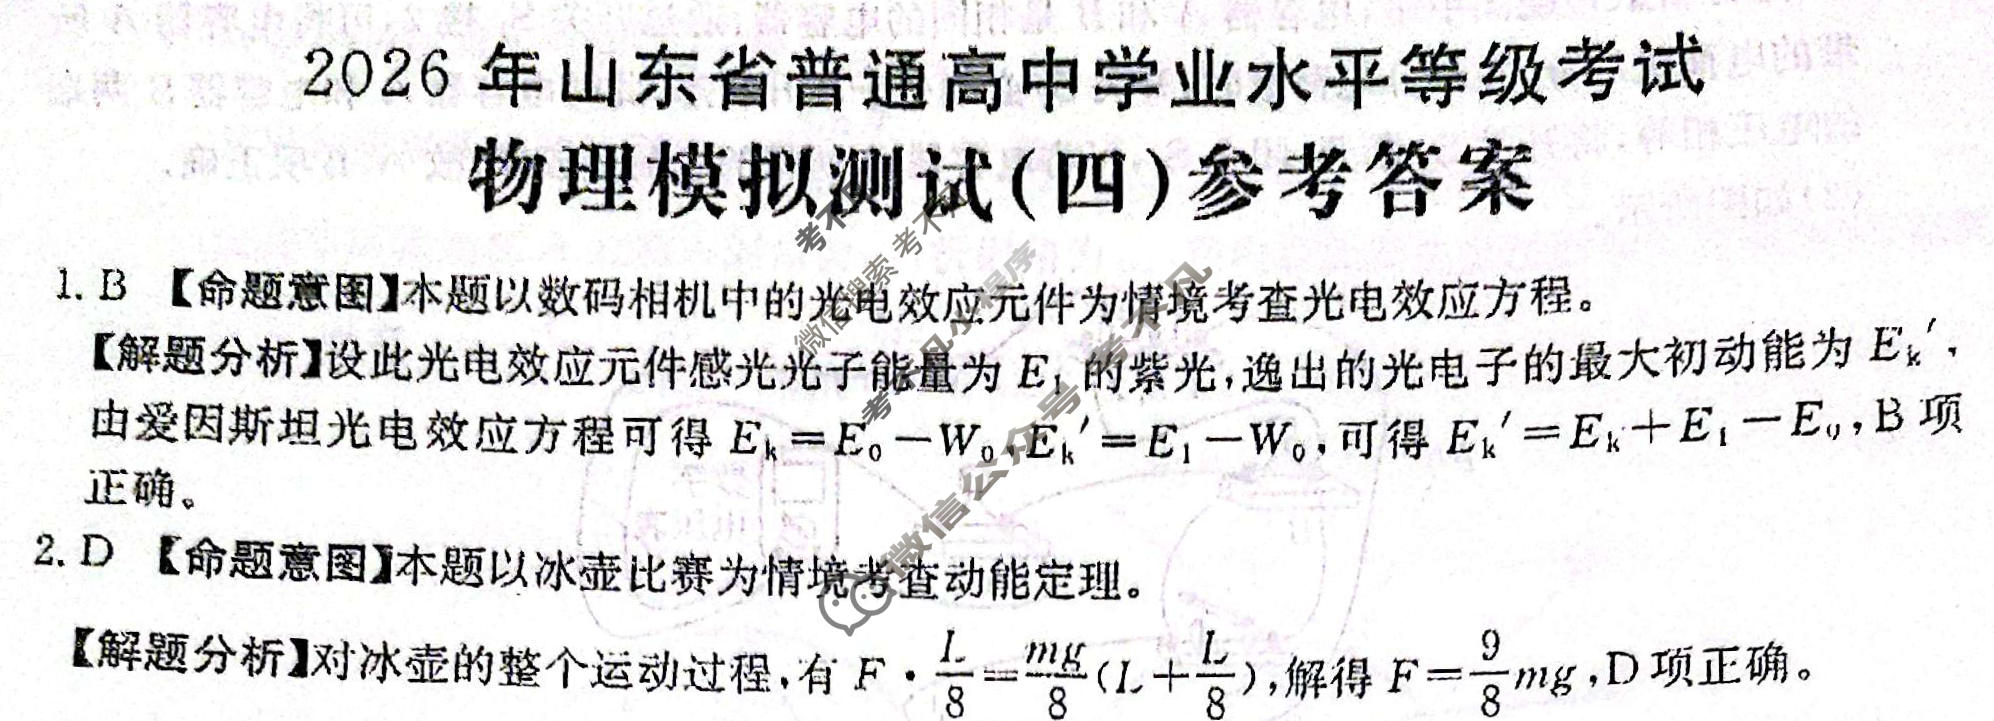 2026年山东省普通高中学业水平等级考试
物理模拟测试(四)参考答案
1. B 【命题意图】本题以数码相机中的光电效应元件为情境考查光电效应方程。
【解题分析】设此光电效应元件感光光子能量为 E₁ 的紫光,逸出的光电子的最大初动能为 Eₖ′,
由爱因斯坦光电效应方程可得 Eₖ=E₀-W₀,Eₖ′=E₁-W₀,可得 Eₖ′=Eₖ+E₁-E₀,B项
正确。
2. D 【命题意图】本题以冰壶比赛为情境考查动能定理。
【解题分析】对冰壶的整个运动过程,有 F·L/8=mg/8(L+L/8),解得 F=9/8mg,D项正确。
微信搜索 考不凡小程序
微信公众号 考不凡